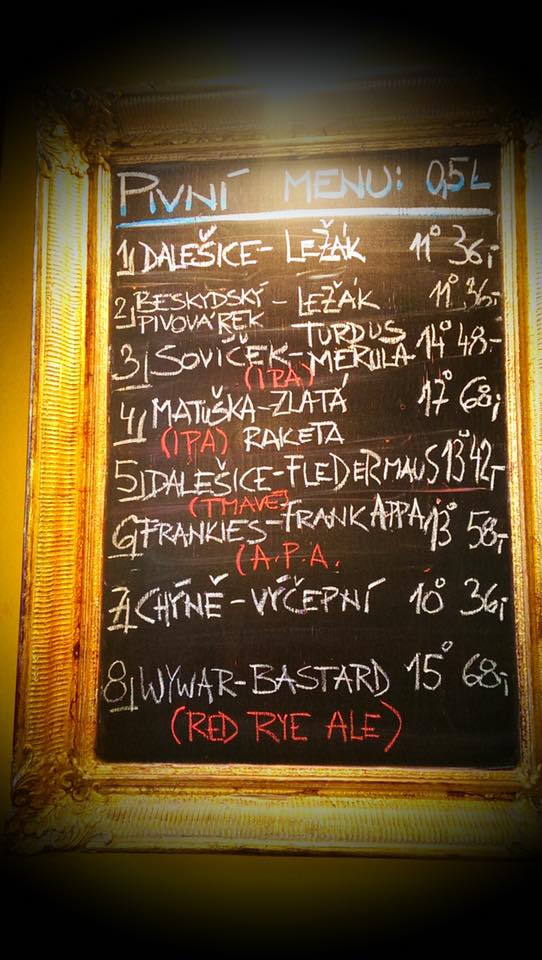 PIVNÍ MENU: 0,5L
1) DALEŠICE- LEŽÁK 11° 36,-
2) BESKYDSKÝ PIVOVÁREK - LEŽÁK 11° 36,-
3) SOVIČEK- TURDUS MERULA 14° 48,-
(IPA)
4) MATUŠKA-ZLATÁ 17° 68,-
(IPA) RAKETA
5) DALEŠICE-FLEDERMAUS 13° 42,-
(TMAVÉ)
6) FRANKIES-FRANK APPA 13° 58,-
(A.P.A.
7) CHÝNĚ-VÝČEPNÍ 10° 36,-
8) WYWAR-BASTARD 15° 68,-
(RED RYE ALE)